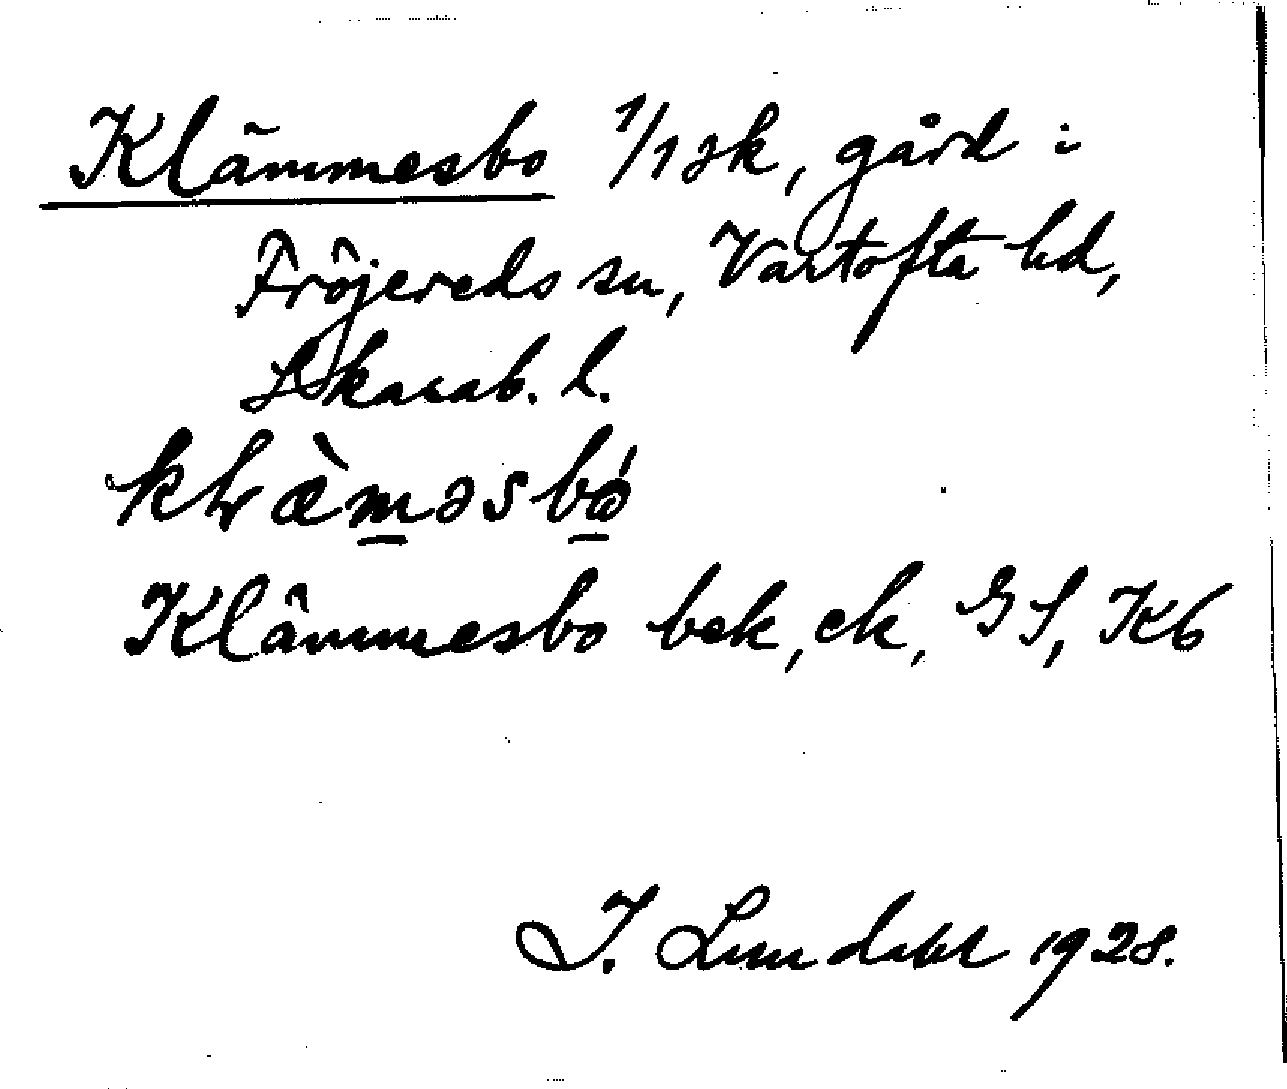 Klämmesbo 1/1 sk, gård i
Fröjereds sn, Vartofta hd,
Skarab. l.
Klämmesbo bek, ek, GS, Kb
I. Lundahl 1928.